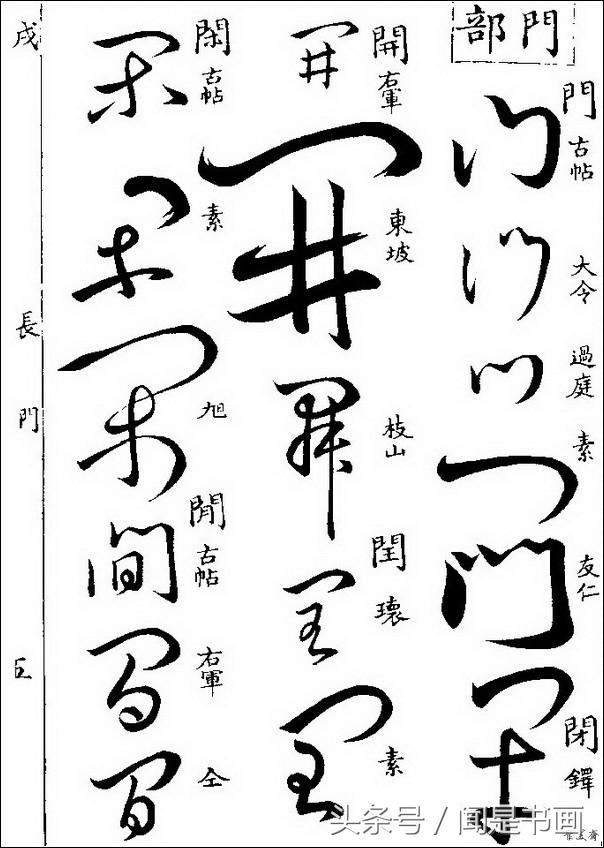 門部
門 古帖
大令
過庭
素
友仁
閉 鐸
開 右軍
東坡
枝山
閏 瓌
素
閑 古帖
素
旭
閒 古帖
右軍
仝
戌
長
門
头条号 / 闻是书画